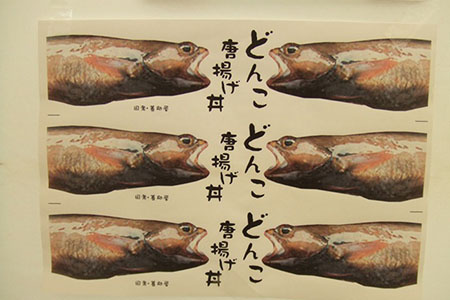 どんこ
唐揚げ丼
どんこ
唐揚げ丼
どんこ
唐揚げ丼